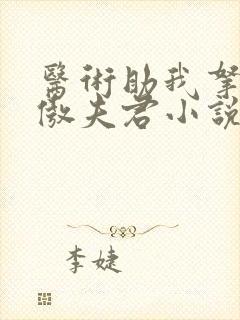 醫術助我拏
傲夫君小說
李婕